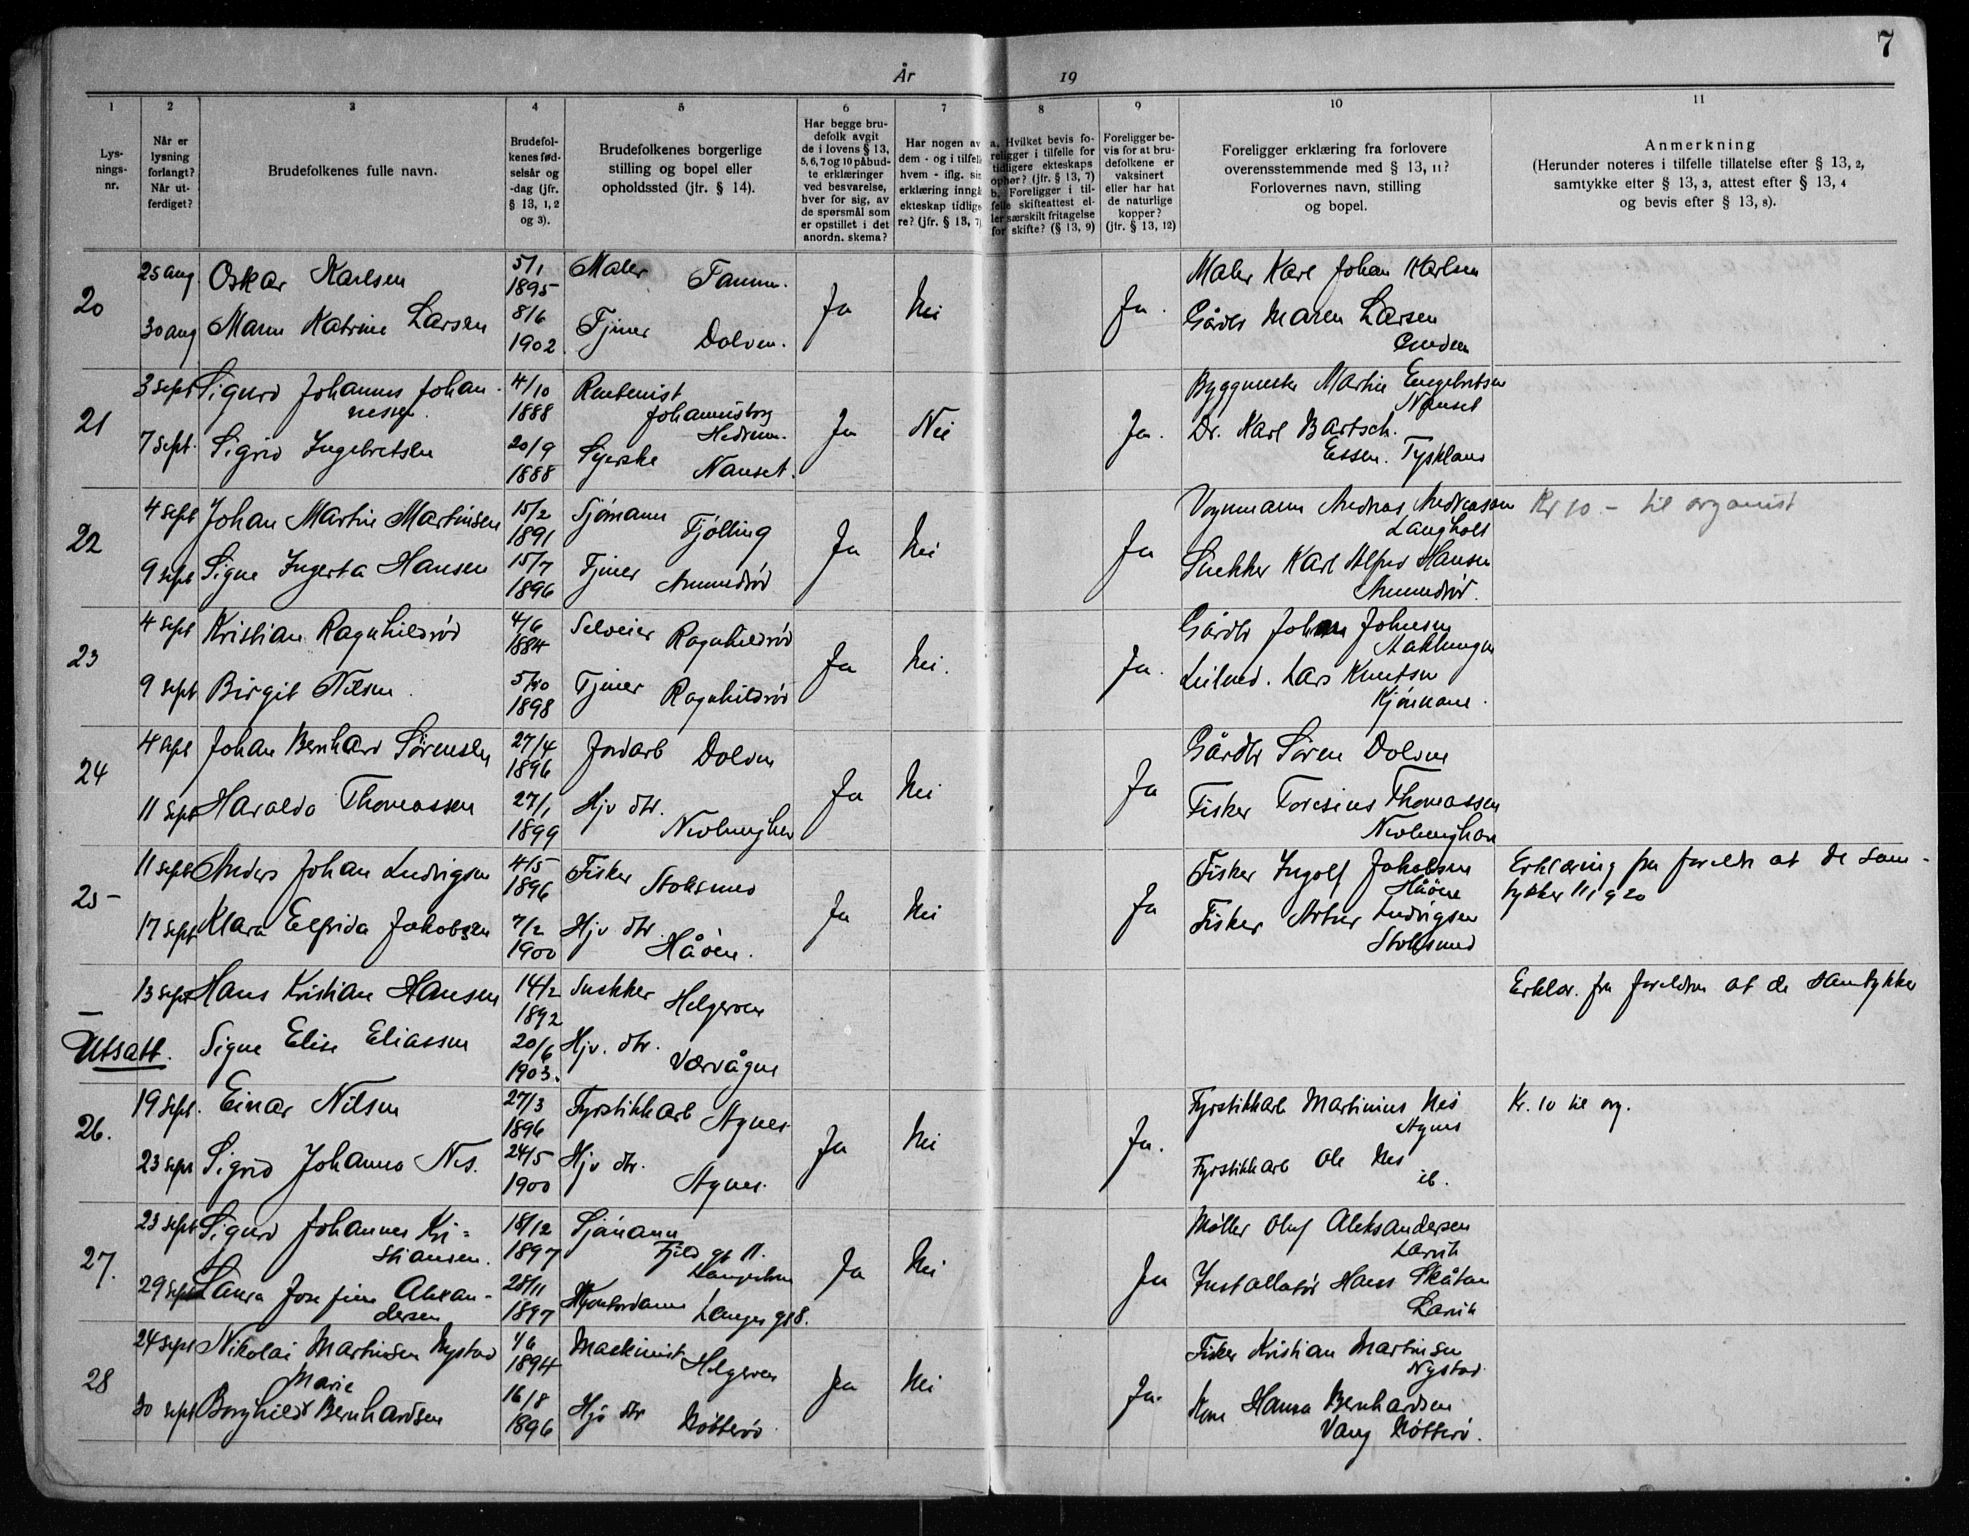 7
År 19
1 2 3 4 5 6 7 8 9 10 11
Lys-
nings-
nr.
Når er
lysning
forlangt?
Når ut-
ferdiget?
Brudefolkenes fulle navn.
Brudefol-
kenes fød-
selsår og
-dag (jfr.
§ 13, 1, 2
og 3).
Brudefolkenes borgerlige
stilling og bopel eller
opholdssted (jfr. § 14).
Har begge bru-
defolk avgit
de i lovens § 13,
5, 6, 7 og 10 påbud-
te erklæringer
ved besvarelse,
hver for sig, av
de spørsmål som
er opstillet i det
anordn. skema?
Har nogen av
dem - og i tilfelle
hvem - iflg. sin
erklæring inngått
ekteskap tidlige-
re? (jfr. § 13, 7)
a. Hvilket bevis fo-
religger i tilfelle for
tidligere ekteskaps
ophør? (jfr. § 13, 7)
b. Foreligger i til-
felle skifteattest el-
ler særskilt fritagelse
for skifte? (§ 13, 9)
Foreligger be-
vis for at bru-
defolkene er
vaksinert
eller har hat
de naturlige
kopper?
(jfr. § 13, 12)
Foreligger erklæring fra forlovere
overensstemmende med § 13, 11?
Forlovernes navn, stilling
og bopel.
Anmerkning
(Herunder noteres i tilfelle tillatelse efter § 13, 2,
samtykke efter § 13, 3, attest efter § 13, 4
og bevis efter § 13, 8).
20
25 aug Oskar Karlsen 5/1 1895 Maler Tanum.
30 aug Maren Katrine Larsen 8/6 1902 Tjener Dolven.
Ja Nei Ja.
Maler Karl Johan Karlsen
Gårdb Maren Larsen
21
3 sept Sigurd Johannes Johan-
nessen. 4/10 1888 Rentenist
Johannisborg
Hedrum.
7 sept. Sigrid Ingebretsen 20/9 1888 Syerske Nanset.
Ja Nei Ja.
Byggmester Martin Engebretsen
Nanset
Dr. Karl Bartsch.
Essen. Tyskland
22
4 sept Johan Martin Martinsen 15/2 1891 Sjømann Tjølling
9 sept Signe Ingerta Hansen 15/7 1896 Tjener Amundrød
Ja Nei Ja
Vognmann Andreas Andreassen
Langholt
Snekker Karl Alfred Hansen
Amundrød.
Kr 10 - til organist
23
4 sept Kristian Ragnhildrød 4/6 1884 Selveier Ragnhildrød
9 sept Birgit Nilsen. 5/10 1898 Tjener Ragnhildrød
Ja Nei. Ja.
Gårdbr Johan Johnsen
Lars Knutsen
24
4 sept Johan Bernhard Sørensen 27/4 1896 Jordarb Dolven
11 sept Haralda Thomassen 27/1 1899 Hjv dtr.
Nevlunghavn
Ja Nei Ja
Gårdbr Søren Dolven
Fisker Toresius Thomassen
Nevlunghavn
25-
11 sept Anders Johan Ludvigsen 4/5 1896 Fisker Stoksund
17 sept Klara Elfrida Jakobsen 7/2 1900 Hjv dtr.
Håøen.
Ja Nei Ja
Fisker Ingolf Jakobsen
Håøene
Fisker Artur Ludvigsen
Stoksund
Erklæring fra foreldre at de sam-
tykker 11/9 20
Utsatt.
13 sept Hans Kristian Hansen 14/2 1892 Snekker Helgeroen
Signe Elise Eliassen 20/6 1903. Hjv. dtr. Værvågen
Erklær. fra foreldrene at de samtykker
26.
19 sept. Einar Nilsen 27/3 1896 Fyrstikkarb Agnes
23 sept Sigrid Johanna Nes. 24/5 1900 Hjv dtr.
Agnes.
Ja Nei Ja.
Fyrstikkarb Martinius Nes
Agnes
Fyrstikkarb Ole Nes
ib.
Kr. 10 til org.
27.
23 sept Sigurd Johannes Kri-
stiansen. 18/12 1897 Sjømann
Langestrand
29 sept Laura Josefine Alexan-
dersen 28/11 1897 Kontordame Langes gt 8.
Ja Nei Ja
Møller Oluf Aleksandersen
Larvik
Installatør Hans Skåtan
Larvik
28
24 sept Nikolai Martinsen Nystad 1/6 1894 Maskinist Helgeroen
Marie
30 sept Borghild Bernhardsen 16/8 1896 Hjv dtr Nøtterø
Ja Nei Ja.
Fisker Kristian Martinsen
Nystad
Hanna Bernhardsen
Vang Nøtterø.